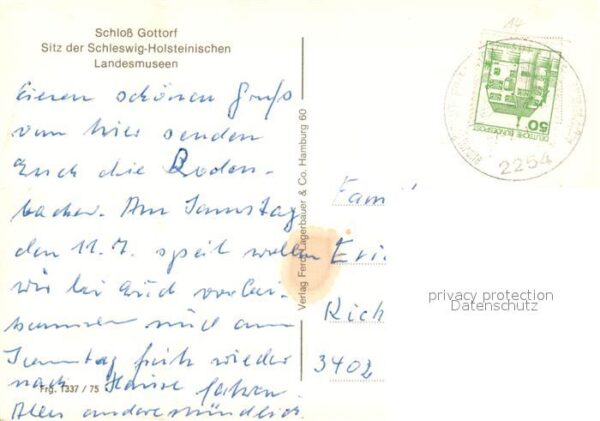 Schloß Gottorf
Sitz der Schleswig-Holsteinischen
Landesmuseen
Einen schönen Gruß
von hier senden
Euch die Boden-
bacher. Am Samstag
den 11.7. spät wollen
wir bei Euch vorbei-
kommen und am
Sonntag früh wieder
nach Hause fahren.
Alles andere mündlich.
Frg. 1337 / 75
Verlag Ferd. Lagerbauer & Co. Hamburg 60
14
50
DEUTSCHE BUNDESPOST
2254
Fami
Eri
Rich
3402
privacy protection
Datenschutz